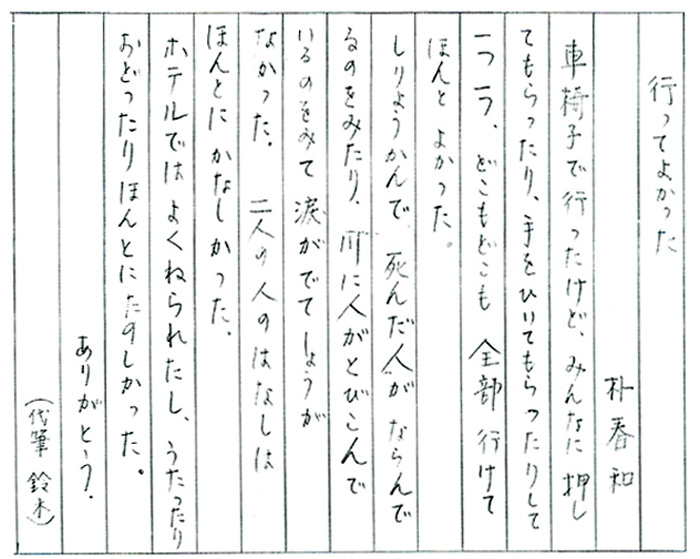 行ってよかった
朴春和
車椅子で行ったけど、みんなに押し
てもらったり、手をひいてもらったりして
一つ一つ、どこもどこも全部行けて
ほんとよかった。
しりょうかんで、死んだ人がならんで
るのをみたり、川に人がとびこんで
いるのをみて涙がでてしょうが
なかった。二人の人のはなしは
ほんとにかなしかった。
ホテルではよくねられたし、うたったり
おどったりほんとにたのしかった。
ありがとう。
(代筆 鈴木)